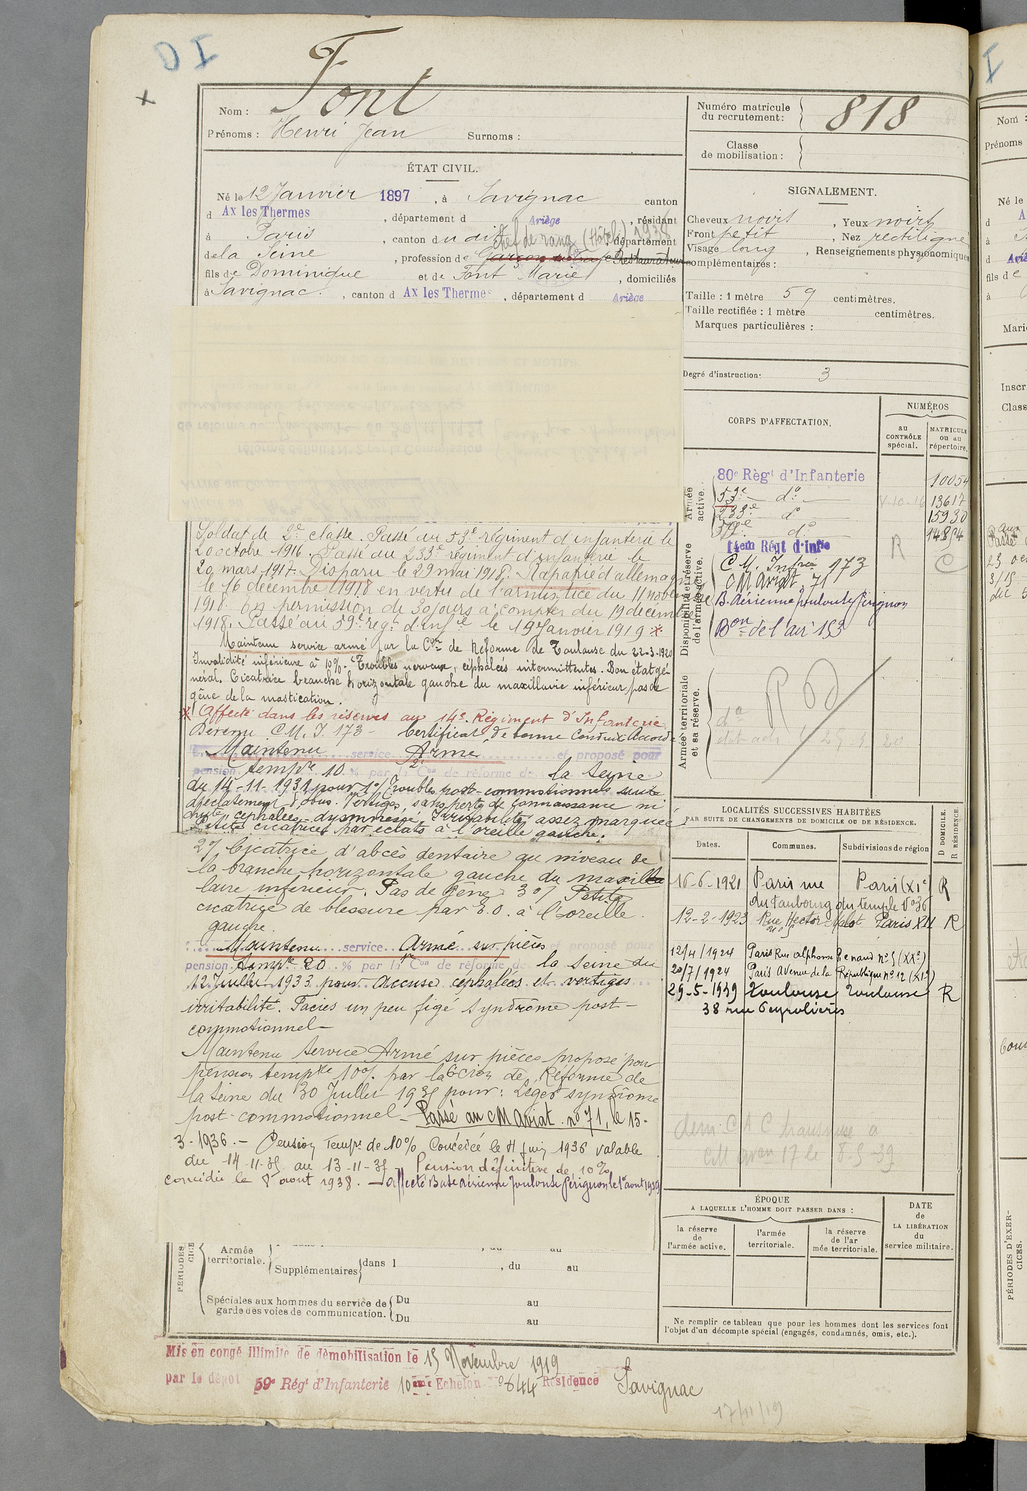 DI
Font
Nom :
Prénoms : Henri Jean Surnoms :
Numéro matricule du recrutement : 818
Classe de mobilisation :
ÉTAT CIVIL.
Né le 12 Janvier 1897, à Savignac canton
d Ax les Thermes, département d Ariège, résidant
à Paris, canton d u dit, département
de la Seine, profession de Chef de rang (Hôtel) 1938 Restaurateur
fils de Dominique et de Font Marie, domiciliés
à Savignac, canton d Ax les Thermes, département d Ariège
SIGNALEMENT.
Cheveux noirs, Yeux noirs
Front petit, Nez rectiligne
Visage long, Renseignements physionomiques
complémentaires :
Taille : 1 mètre 59 centimètres.
Taille rectifiée : 1 mètre centimètres.
Marques particulières :
Degré d'instruction : 3
CORPS D'AFFECTATION.
NUMÉROS
au CONTRÔLE spécial.
MATRICULE ou au répertoire.
Armée active.
80e Régt d'Infanterie 10054
53e do 4-10-16 13617
233e do 15930
59e do 14814
Disponibilité et réserve de l'armée active.
14em Régt d'Infie
C M. Infrie 173
C M Ariat 71
B. Aérienne Toulouse Pérignon
Bon de l'air 153
R
C
Armée territoriale et sa réserve.
Soldat de 2e classe. Passé au 53e régiment d'infanterie le
20 octobre 1916. Passé au 233e régiment d'infanterie le
20 mars 1917. Disparu le 29 mai 1918. Rapatrié d'allemagne
le 16 décembre 1918 en vertu de l'armistice du 11 novembre
1918. En permission de 30 jours à compter du 19 décembre
1918. Passé au 59e reg. d'infie le 19 Janvier 1919 x
Maintenu service armé par la Con de Réforme de Toulouse du 22-3-1920
Invalidité inférieure à 10%. Troubles nerveux, céphalées intermittentes. Bon état gé-
néral. Cicatrice branche horizontale gauche du maxillaire inférieur, pas de
gêne de la mastication.
x Affecté dans les réserves au 14e Régiment d'Infanterie
Devenu C.M. I. 173 - Certificat de bonne Conduite Accordé
Maintenu service Armé et proposé pour
pension tempre 10 % par la 2e Con de réforme de la Seine
du 14-11-1931 pour 1o/ Troubles post-commotionnels suite
d'éclatement d'obus. Vertiges, sans perte de connaissance ni
chute, céphalées, dysmnésie, Irritabilité assez marquée
Petites cicatrices par éclats à l'oreille gauche.
2o/ Cicatrice d'abcès dentaire au niveau de
la branche horizontale gauche du maxil
laire inférieur. Pas de gêne 3o/ Petite
cicatrice de blessure par E.O. à l'oreille
gauche.
Maintenu service Armé sur pièces et proposé pour
pension tempre 20 % par la Con de réforme de la Seine du
12 Juillet 1933 pour Accuse céphalées et vertiges
irritabilité. Faciès un peu figé syndrome post-
commotionnel -
Maintenu Service Armé sur pièces proposé pour
pension tempre 10% par la 6e Cion de Réforme de
la Seine du 30 Juillet 1935 pour : Léger syndrome
post-commotionnel - Passé au C M Ariat. no 71, le 15-
3-1936. - Pension tempre de 10% Concédée le 11 juin 1936 valable
du 14-11-35 au 13-11-37 Pension définitive de 10%
concédée le 8 aout 1938. - affecté Base aérienne Toulouse Pérignon le 1er aout 1939
LOCALITÉS SUCCESSIVES HABITÉES
PAR SUITE DE CHANGEMENTS DE DOMICILE OU DE RÉSIDENCE.
D DOMICILE. R RÉSIDENCE.
Dates. Communes. Subdivisions de région
16-6-1921 Paris rue Paris (XIe) R
du Faubourg du Temple No 36
13-2-1923 Rue Hector Malot Paris XII R
12/4/1924 Paris Rue alphonse Penaud no 5 (XXe)
20/7/1924 Paris Avenue de la République no 12 (XIe)
29-5-1939 Toulouse Toulouse R
38 rue Peyrolières
ÉPOQUE
A LAQUELLE L'HOMME DOIT PASSER DANS :
la réserve de l'armée active.
l'armée territoriale.
la réserve de l'armée territoriale.
DATE de LA LIBÉRATION du service militaire.
Ne remplir ce tableau que pour les hommes dont les services font
l'objet d'un décompte spécial (engagés, condamnés, omis, etc.).
Armée territoriale.
Supplémentaires dans l , du au
Spéciales aux hommes du service de garde des voies de communication. Du au
Du au
Mis en congé illimité de démobilisation le 15 Novembre 1919
par le dépôt 59e Régt d'Infanterie 10ème Echelon No 644 Résidence Savignac
17/11/19